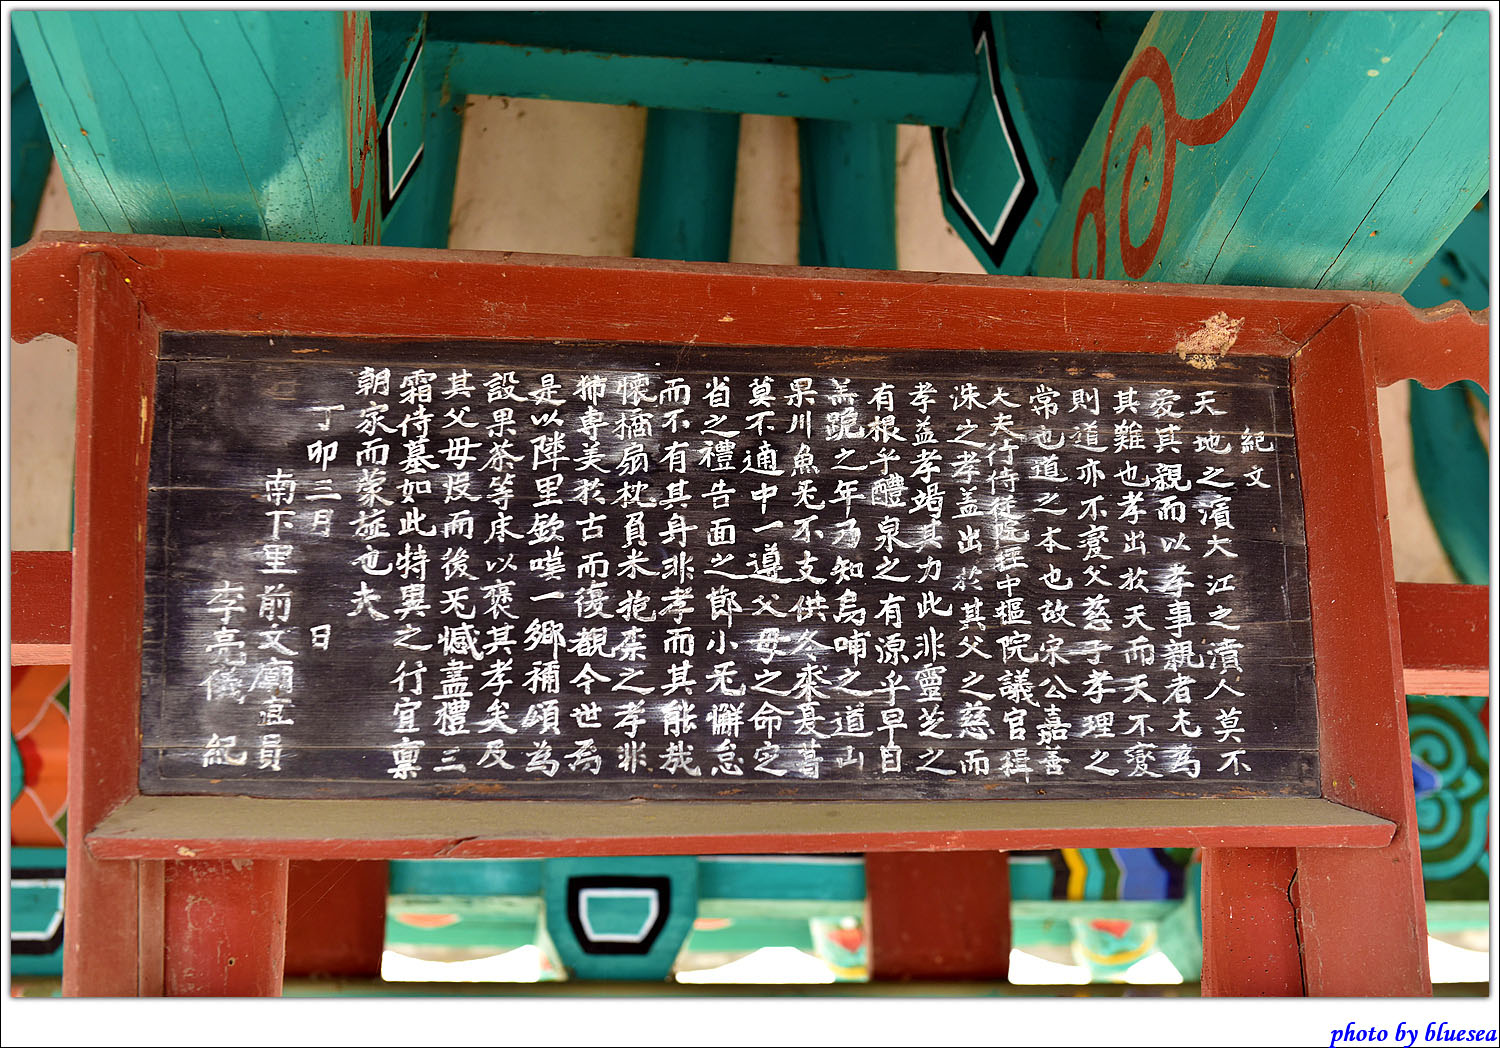 紀文
天地之濱大江之濆人莫不
愛其親而以孝事親者尤為
其難也孝出於天而天不變
則道亦不變父慈子孝理之
常也道之本也故宋公嘉善
大夫行侍從院經中樞院議官緝
洙之孝盖出於其父之慈而
孝益孝竭其力此非靈芝之
有根乎醴泉之有源乎早自
羔跪之年乃知烏哺之道山
果川魚旡不支供冬裘夏葛
莫不適中一導父母之命定
省之禮告面之節小旡懈怠
而不有其身非孝而其能哉
懷橘扇枕負米抱栥之孝非
獨専美於古而復觀今世焉
是以陣里欽嘆一鄉稱頌為
設果茶等床以褒其孝矣及
其父母歿而後旡憾盡禮三
霜侍墓如此特異之行宜稟
朝家而蒙旌也夫
丁卯三月 日
南下里前文廟直員
李亮儀 紀
photo by bluesea